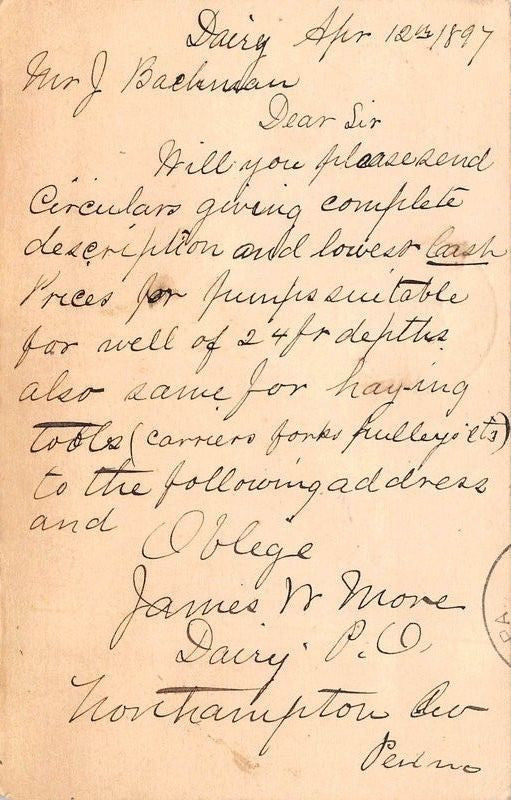 Dairy Apr 12th 1897
Mr J Bachman
Dear Sir
Will you please send
Circulars giving complete
description and lowest Cash
Prices for pumps suitable
for well of 24 ft depths
also same for haying
tools (carriers forks pulleys etc)
to the following address
and
Oblege
James W More
Dairy P.O.
Northampton Co
Penna
PA